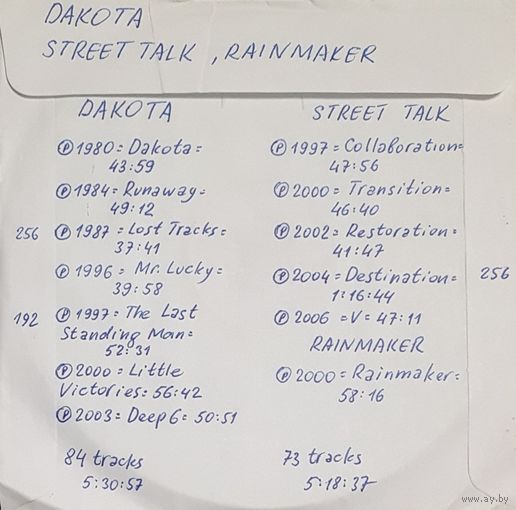 DAKOTA
STREET TALK, RAINMAKER
DAKOTA
Ⓟ1980=Dakota=
43:59
Ⓟ1984=Runaway=
49:12
256 Ⓟ1987=Lost Tracks=
37:41
Ⓟ1996=Mr. Lucky=
39:58
192 Ⓟ1997=The Last
Standing Man=
52:31
Ⓟ2000=Little
Victories=56:42
Ⓟ2003=Deep6=50:51
84 tracks
5:30:57
STREET TALK
Ⓟ1997=Collaboration=
47:56
Ⓟ2000=Transition=
46:40
Ⓟ2002=Restoration=
41:47
Ⓟ2004=Destination= 256
1:16:44
Ⓟ2006=V=47:11
RAINMAKER
Ⓟ2000=Rainmaker=
58:16
73 tracks
5:18:37
www.ay.by